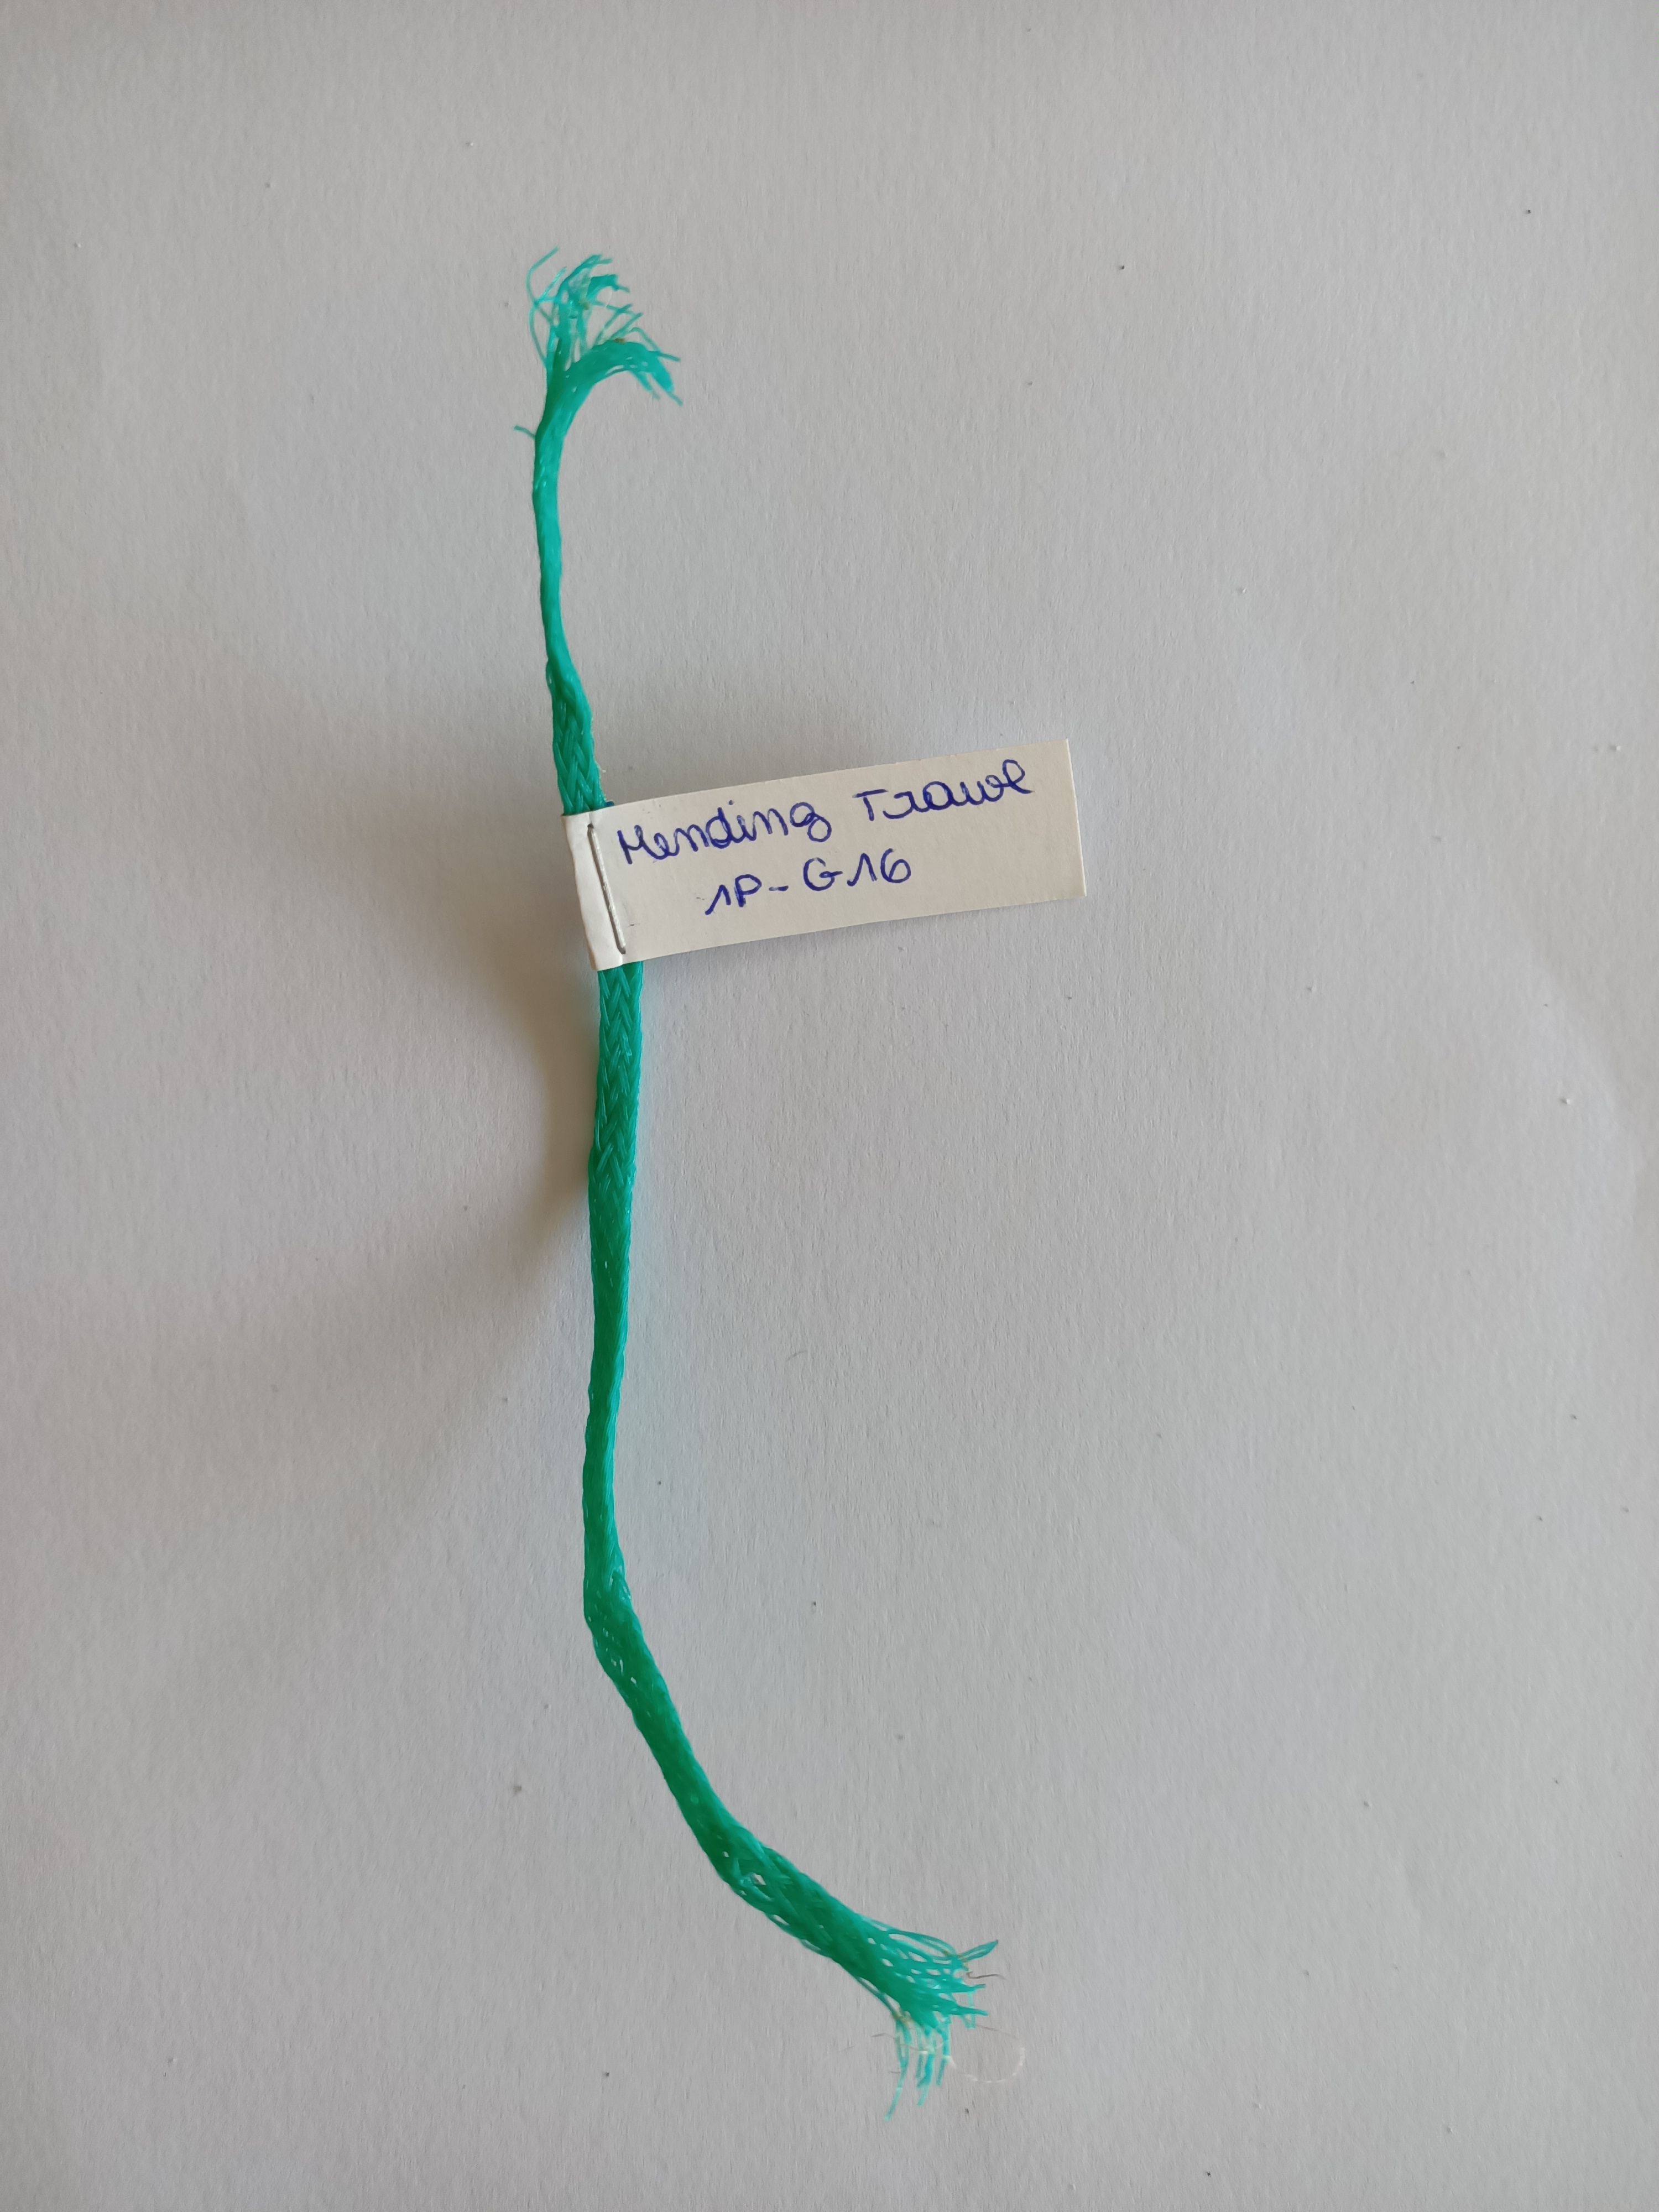 Mending Trawl
1P-G16